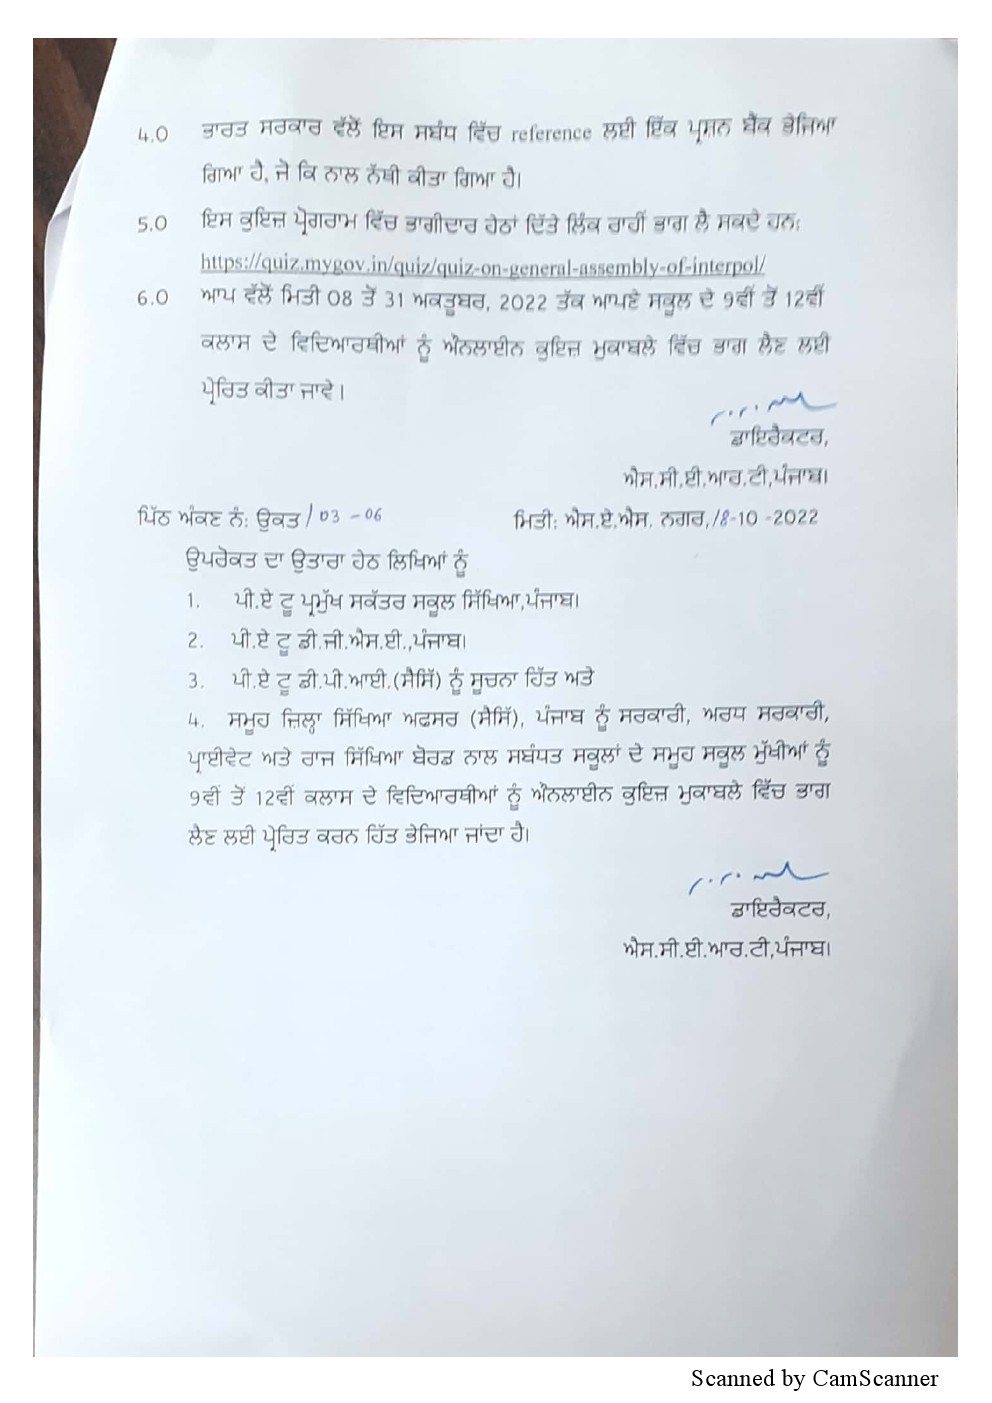 4.0 ਭਾਰਤ ਸਰਕਾਰ ਵੱਲੋਂ ਇਸ ਸਬੰਧ ਵਿੱਚ reference ਲਈ ਇੱਕ ਪ੍ਰਸ਼ਨ ਬੈਂਕ ਭੇਜਿਆ
ਗਿਆ ਹੈ, ਜੋ ਕਿ ਨਾਲ ਨੱਥੀ ਕੀਤਾ ਗਿਆ ਹੈ।
5.0 ਇਸ ਕੁਇਜ਼ ਪ੍ਰੋਗਰਾਮ ਵਿੱਚ ਭਾਗੀਦਾਰ ਹੇਠਾਂ ਦਿੱਤੇ ਲਿੰਕ ਰਾਹੀਂ ਭਾਗ ਲੈ ਸਕਦੇ ਹਨ:
https://quiz.mygov.in/quiz/quiz-on-general-assembly-of-interpol/
6.0 ਆਪ ਵੱਲੋਂ ਮਿਤੀ 08 ਤੋਂ 31 ਅਕਤੂਬਰ, 2022 ਤੱਕ ਆਪਣੇ ਸਕੂਲ ਦੇ 9ਵੀਂ ਤੋਂ 12ਵੀਂ
ਕਲਾਸ ਦੇ ਵਿਦਿਆਰਥੀਆਂ ਨੂੰ ਔਨਲਾਈਨ ਕੁਇਜ਼ ਮੁਕਾਬਲੇ ਵਿੱਚ ਭਾਗ ਲੈਣ ਲਈ
ਪ੍ਰੇਰਿਤ ਕੀਤਾ ਜਾਵੇ।
ਡਾਇਰੈਕਟਰ,
ਐਸ.ਸੀ.ਈ.ਆਰ.ਟੀ,ਪੰਜਾਬ।
ਪਿੱਠ ਅੰਕਣ ਨੰ: ਉਕਤ /03-06 ਮਿਤੀ: ਐਸ.ਏ.ਐਸ. ਨਗਰ,/18-10-2022
ਉਪਰੋਕਤ ਦਾ ਉਤਾਰਾ ਹੇਠ ਲਿਖਿਆਂ ਨੂੰ
1. ਪੀ.ਏ ਟੂ ਪ੍ਰਮੁੱਖ ਸਕੱਤਰ ਸਕੂਲ ਸਿੱਖਿਆ,ਪੰਜਾਬ।
2. ਪੀ.ਏ ਟੂ ਡੀ.ਜੀ.ਐਸ.ਈ.,ਪੰਜਾਬ।
3. ਪੀ.ਏ ਟੂ ਡੀ.ਪੀ.ਆਈ.(ਸੈਸਿੱ) ਨੂੰ ਸੂਚਨਾ ਹਿੱਤ ਅਤੇ
4. ਸਮੂਹ ਜ਼ਿਲ੍ਹਾ ਸਿੱਖਿਆ ਅਫਸਰ (ਸੈਸਿੱ), ਪੰਜਾਬ ਨੂੰ ਸਰਕਾਰੀ, ਅਰਧ ਸਰਕਾਰੀ,
ਪ੍ਰਾਈਵੇਟ ਅਤੇ ਰਾਜ ਸਿੱਖਿਆ ਬੋਰਡ ਨਾਲ ਸਬੰਧਤ ਸਕੂਲਾਂ ਦੇ ਸਮੂਹ ਸਕੂਲ ਮੁੱਖੀਆਂ ਨੂੰ
9ਵੀਂ ਤੋਂ 12ਵੀਂ ਕਲਾਸ ਦੇ ਵਿਦਿਆਰਥੀਆਂ ਨੂੰ ਔਨਲਾਈਨ ਕੁਇਜ਼ ਮੁਕਾਬਲੇ ਵਿੱਚ ਭਾਗ
ਲੈਣ ਲਈ ਪ੍ਰੇਰਿਤ ਕਰਨ ਹਿੱਤ ਭੇਜਿਆ ਜਾਂਦਾ ਹੈ।
ਡਾਇਰੈਕਟਰ,
ਐਸ.ਸੀ.ਈ.ਆਰ.ਟੀ,ਪੰਜਾਬ।
Scanned by CamScanner